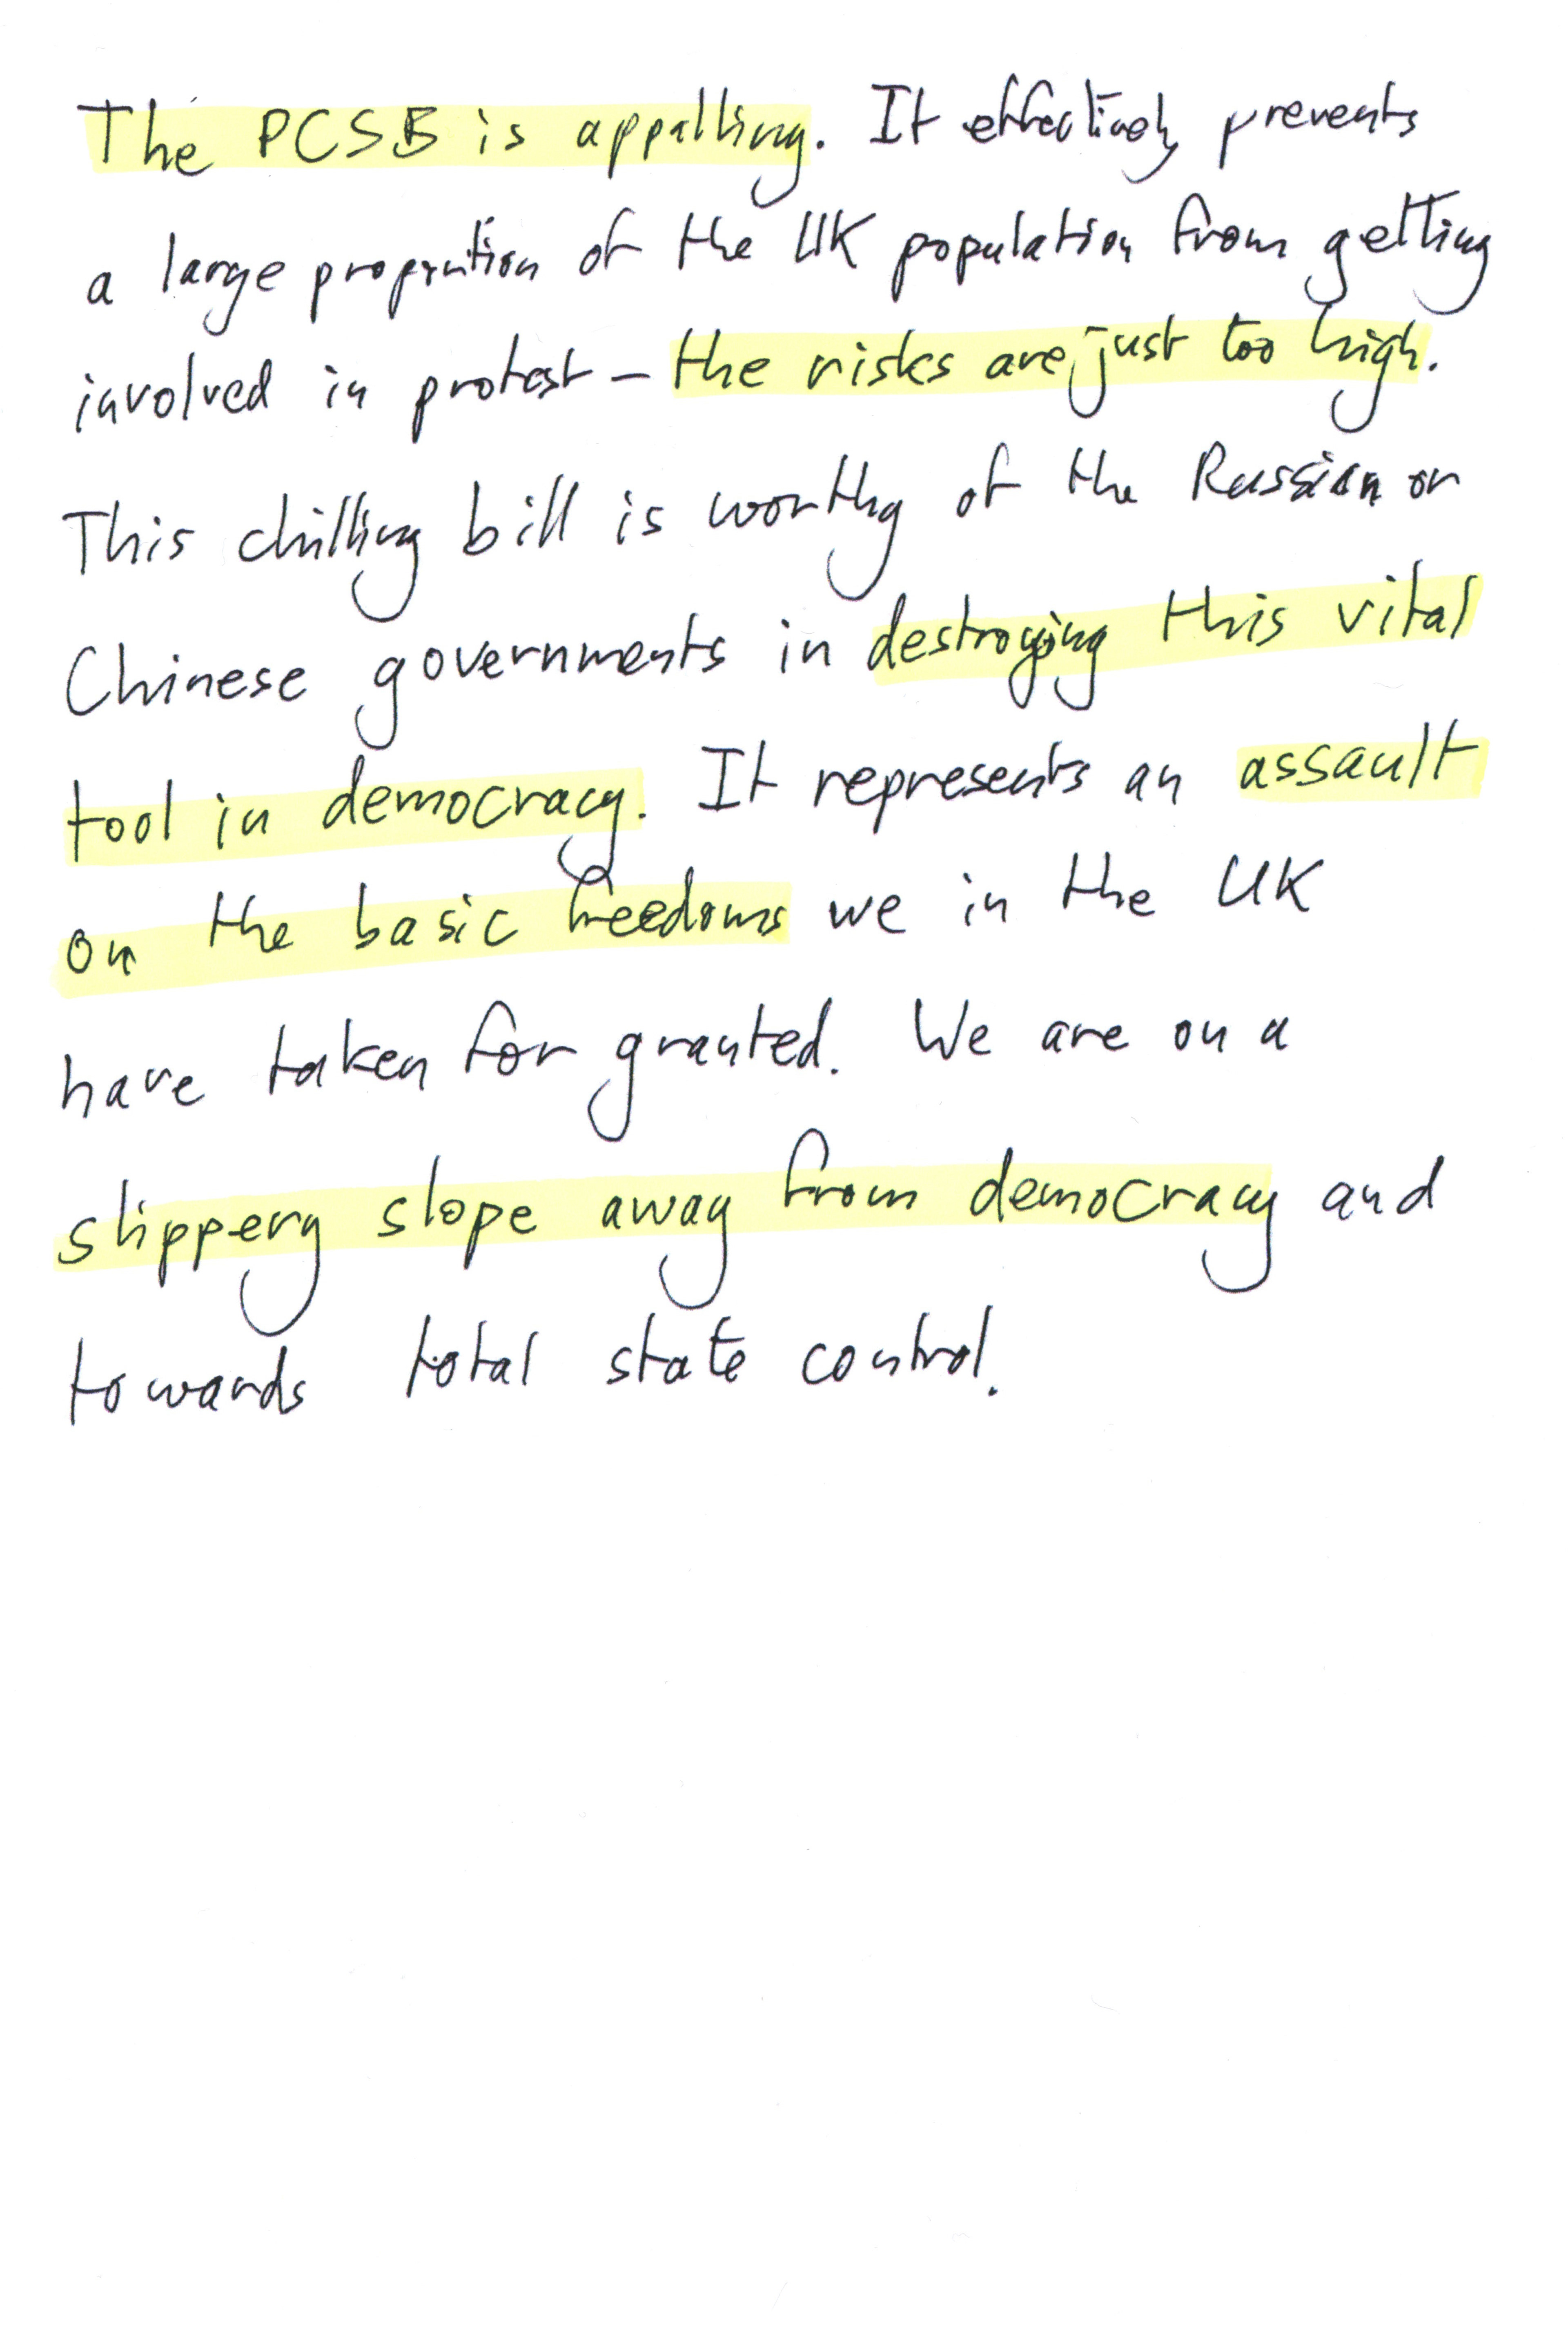 The PCSB is appalling. It effectively prevents
a large proportion of the UK population from getting
involved in protest – the risks are just too high.
This chilling bill is worthy of the Russian or
Chinese governments in destroying this vital
tool in democracy. It represents an assault
on the basic freedoms we in the UK
have taken for granted. We are on a
slippery slope away from democracy and
towards total state control.